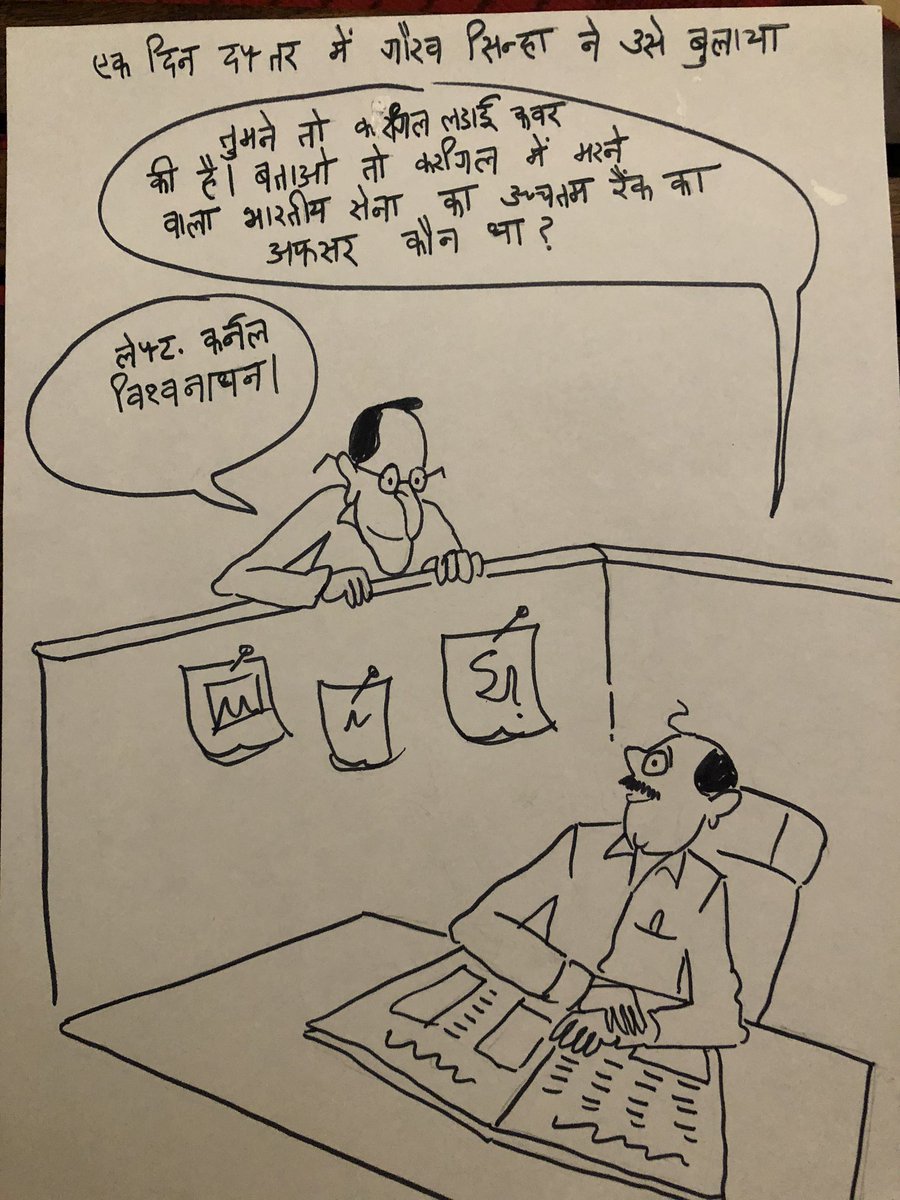 एक दिन दफ्तर में गौरव सिन्हा ने उसे बुलाया
तुमने तो करगिल लडाई कवर
की है। बताओ तो करगिल में मरने
वाला भारतीय सेना का उच्चतम रैंक का
अफसर कौन था?
लेफ्ट. कर्नल
विश्वनाथन।